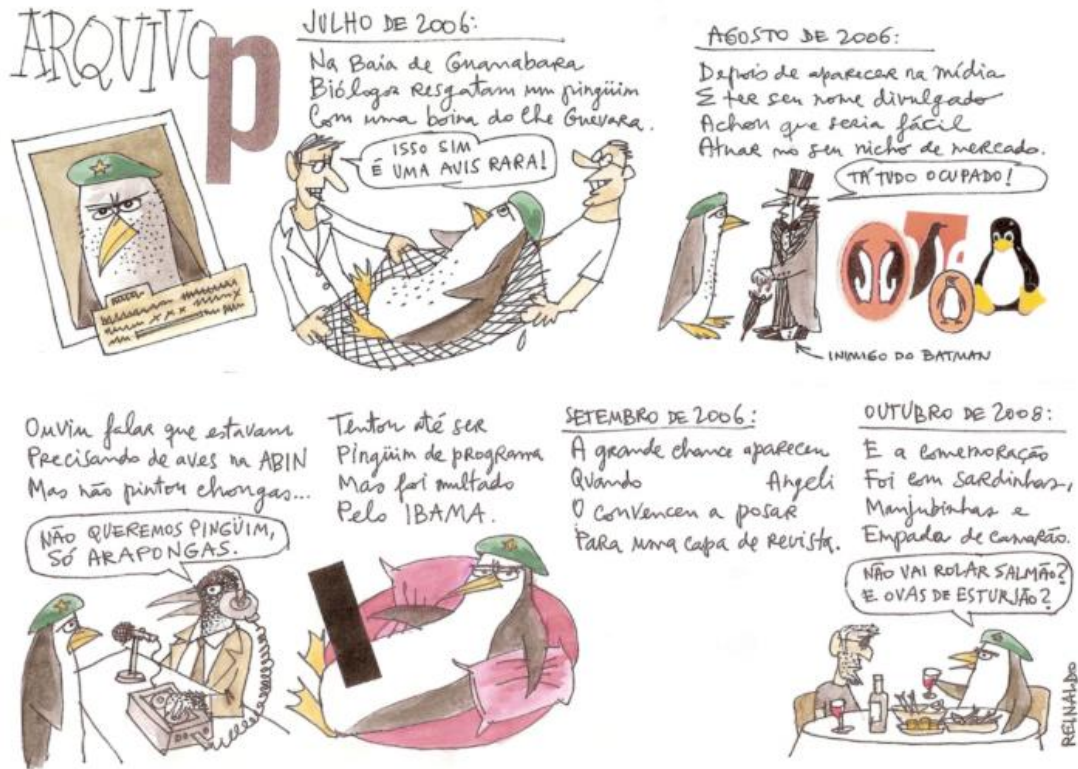 ARQUIVO
p
JULHO DE 2006:
Na Baía de Guanabara
Biólogos resgatam um pingüim
Com uma boina do Che Guevara.
ISSO SIM
É UMA AVIS RARA!
AGOSTO DE 2006:
Depois de aparecer na mídia
E ter seu nome divulgado
Achou que seria fácil
Atuar no seu nicho de mercado.
TÁ TUDO OCUPADO!
INIMIGO DO BATMAN
Ouviu falar que estavam
Precisando de aves na ABIN
Mas não pintou chongas...
NÃO QUEREMOS PINGÜIM,
SÓ ARAPONGAS.
Tentou até ser
Pingüim de programa
Mas foi multado
Pelo IBAMA.
SETEMBRO DE 2006:
A grande chance apareceu
Quando Angeli
O convenceu a posar
Para uma capa de revista.
OUTUBRO DE 2008:
E a comemoração
Foi com sardinhas,
Manjubinhas e
Empada de camarão.
NÃO VAI ROLAR SALMÃO?
E OVAS DE ESTURJÃO?
REINALDO